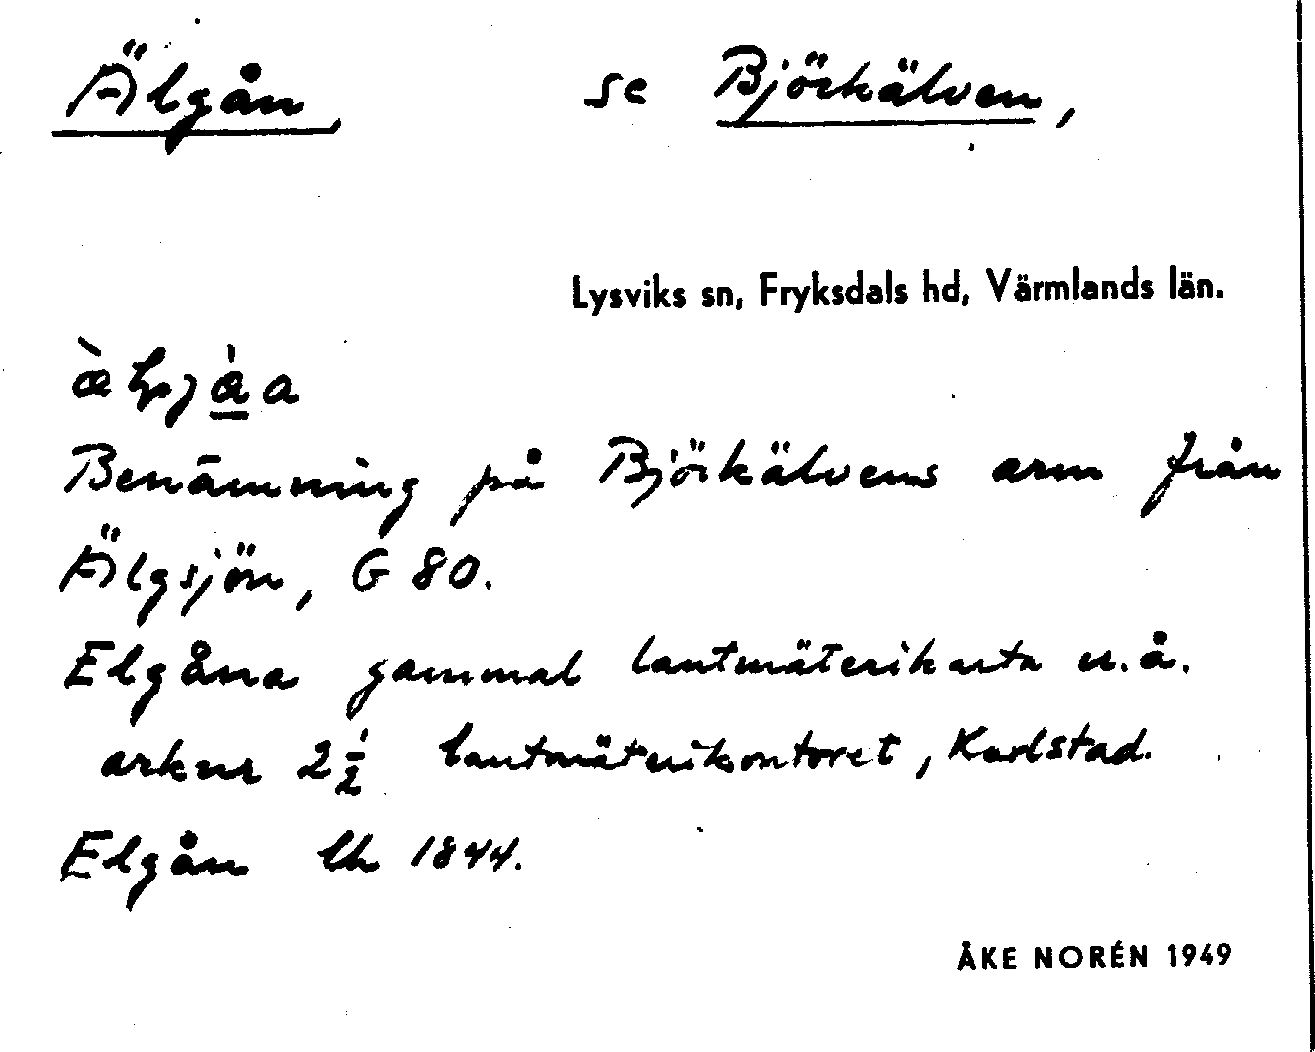 Älgån, se Björkälven,
Lysviks sn, Fryksdals hd, Värmlands län.
Benämning på Björkälvens arm från
Älgsjön, G 80.
Elgåna gammal lantmäterikarta u.å.
arkur 2½ lantmäterikontoret, Karlstad.
Elgån lk 1844.
ÅKE NORÉN 1949